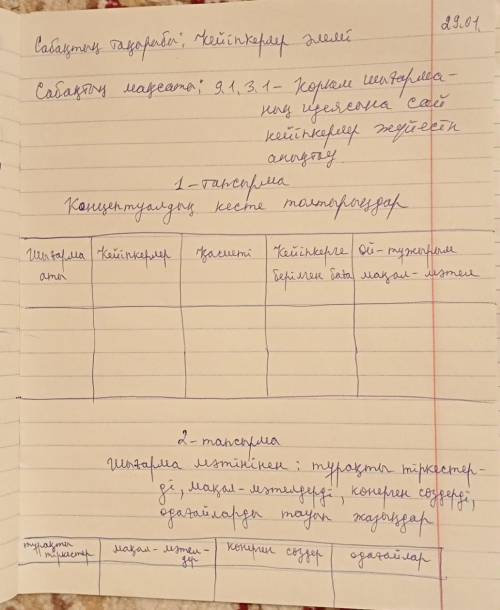 29.01.
Сабақтың тақырыбы: Кейіпкерлер әлемі
Сабақтың мақсаты: 9.1.3.1 – Көркем шығарма-
ның идеясына сай
кейіпкерлер жүйесін
анықтау
1-тапсырма
Концептуалдық кесте толтырыңдар
Шығарма аты | Кейіпкерлер | Қасиеті | Кейіпкерге берілген баға | Ой-тұжырым мақал-мәтел
2-тапсырма
Шығарма мәтінінен: тұрақты тіркестер-
ді, мақал-мәтелдерді, көнерген сөздерді,
одағайларды тауып жазыңдар
тұрақты тіркестер | мақал-мәтел-дер | көнерген сөздер | одағайлар